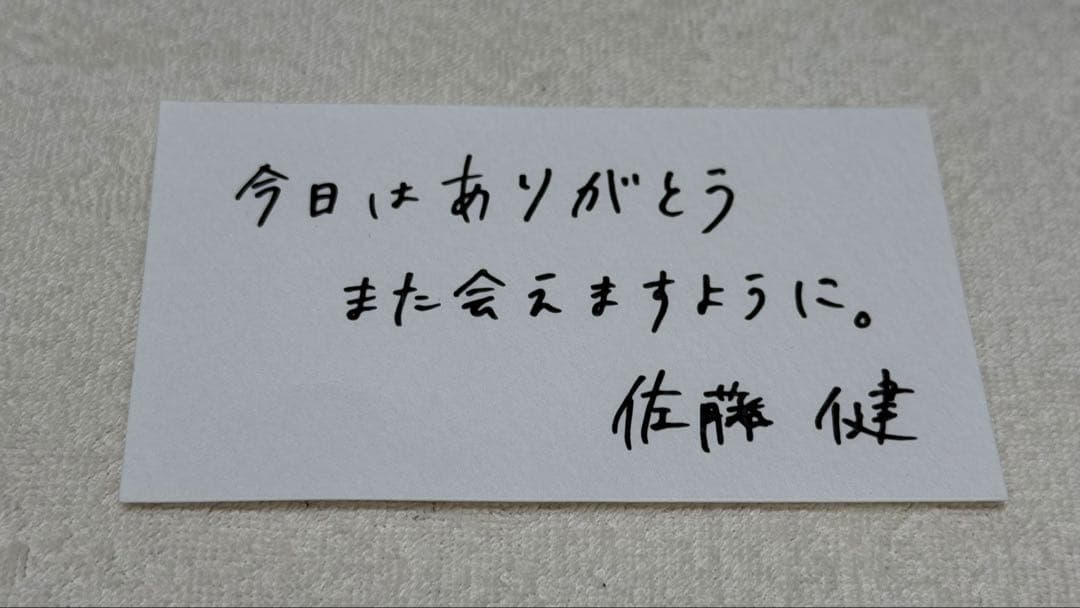 今日はありがとう
また会えますように。
佐藤 健